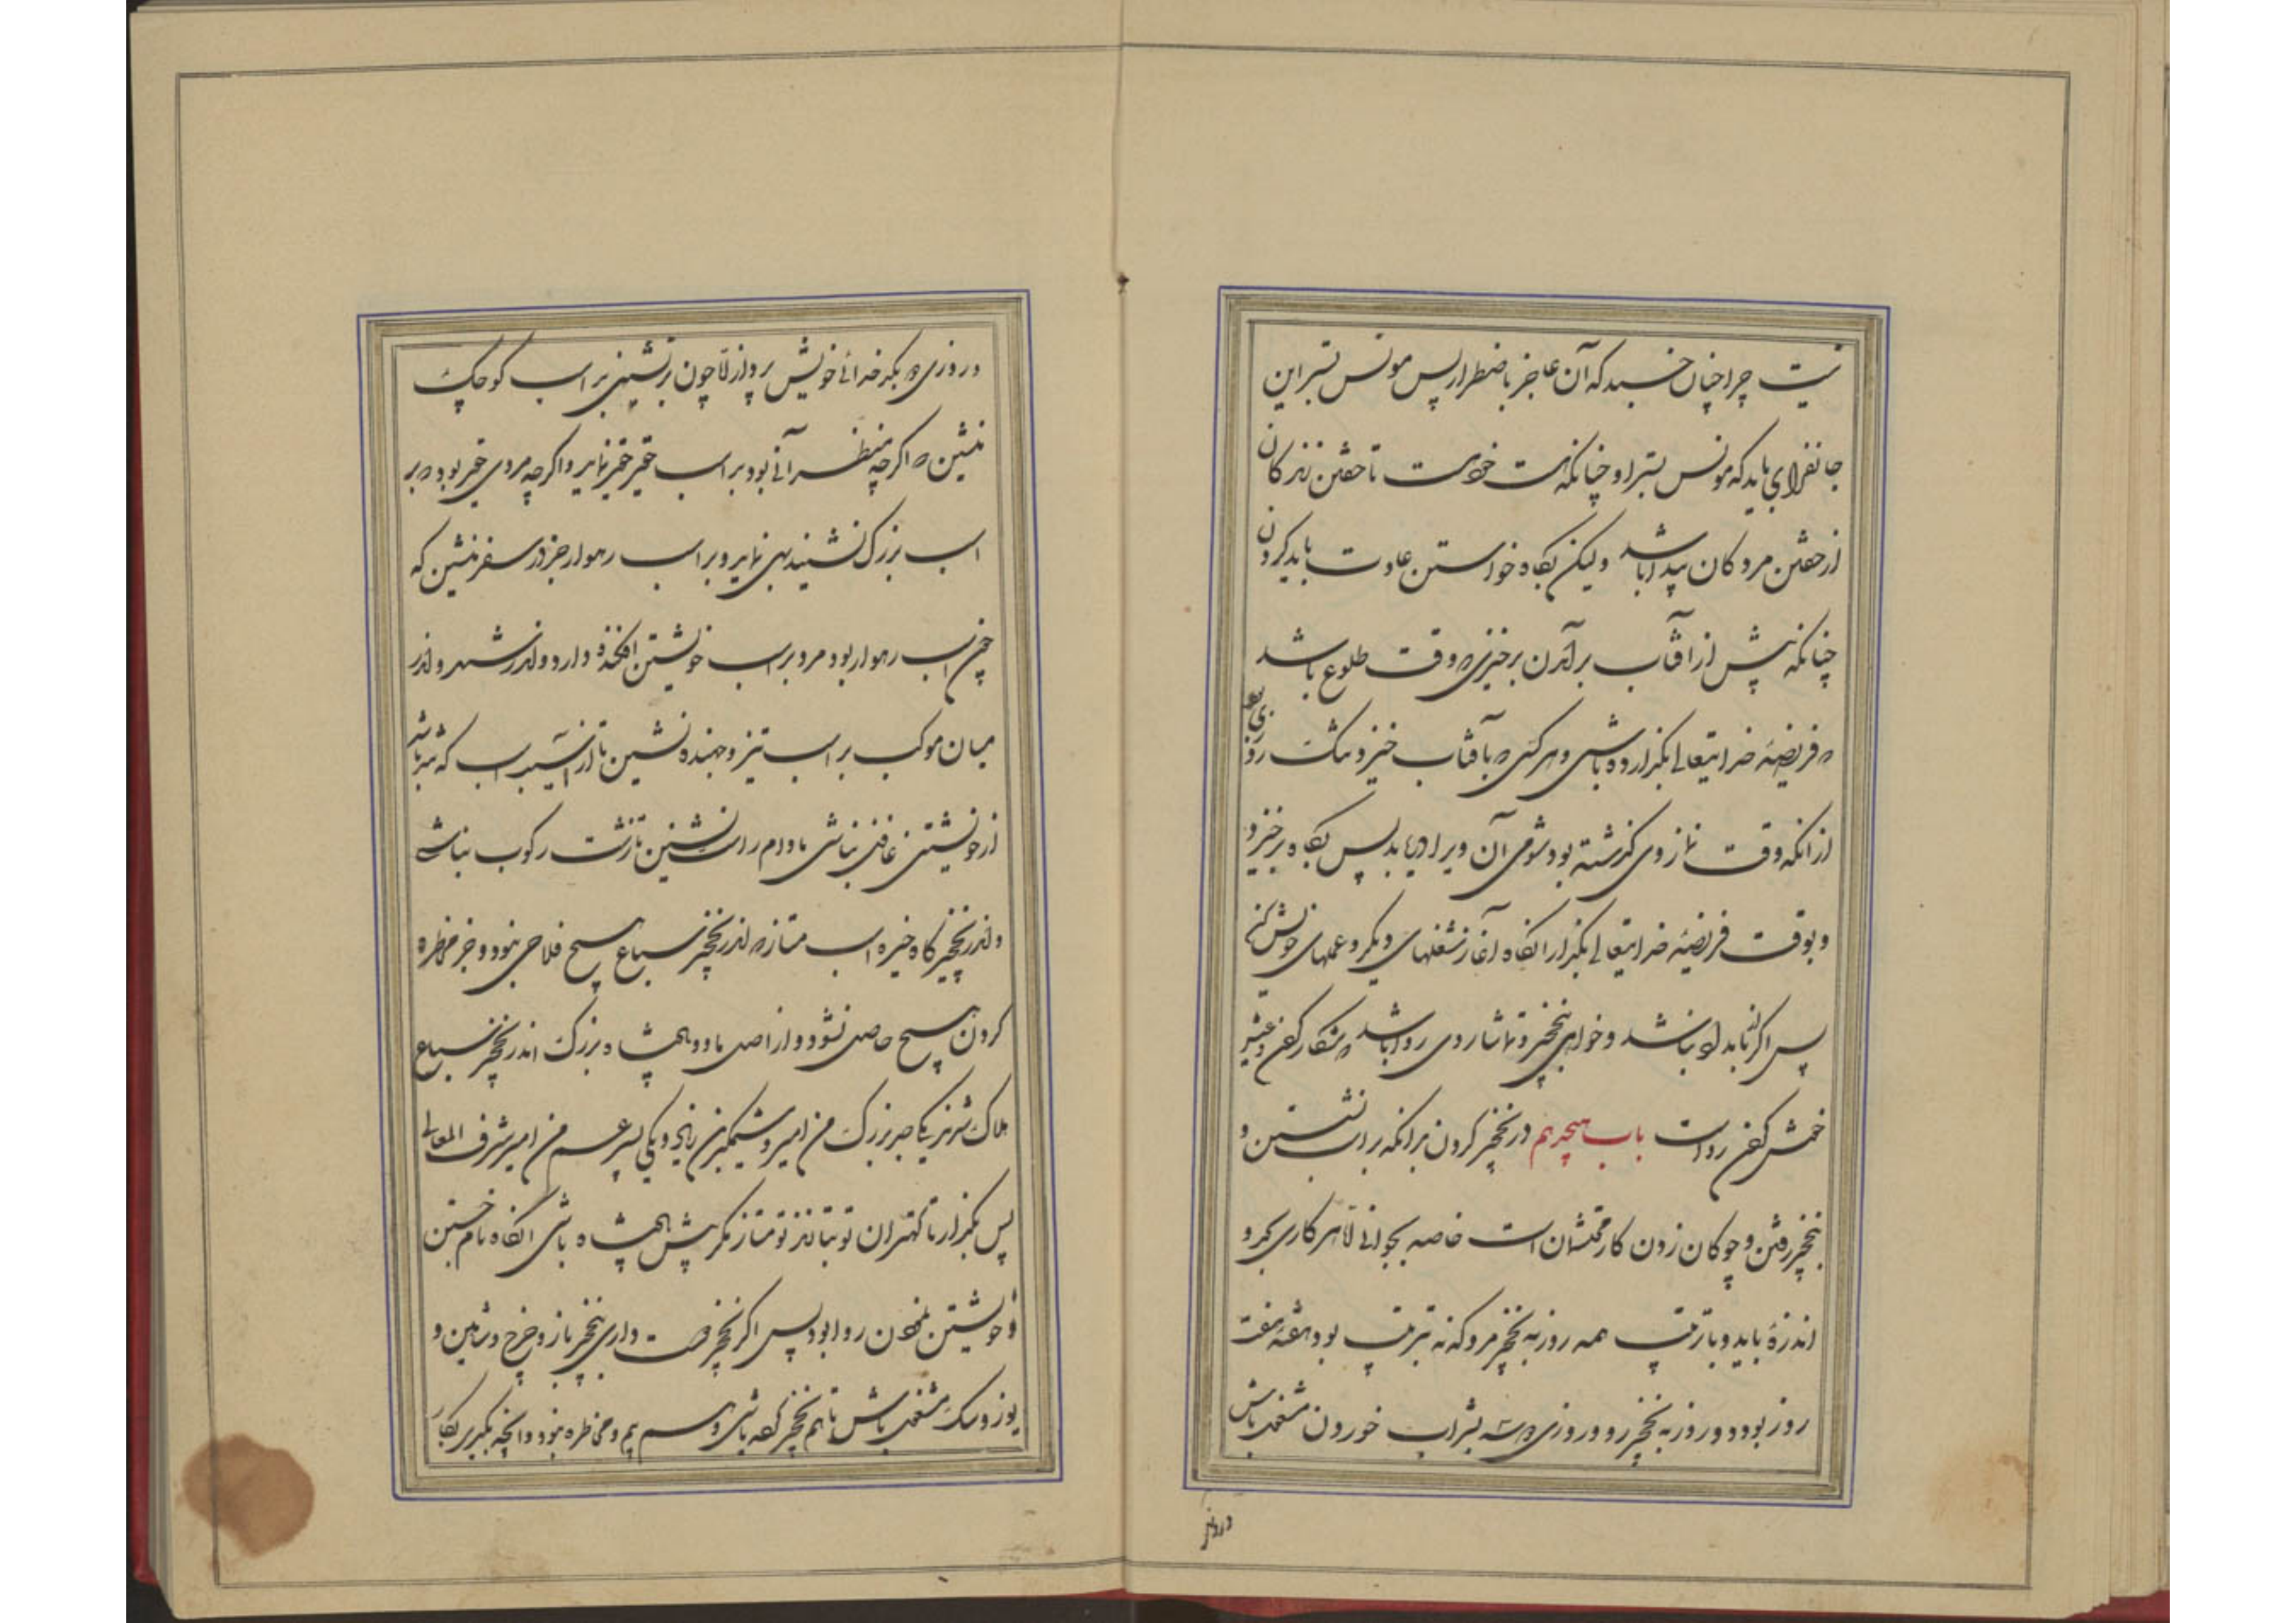 نیست چرا چنان خسبد که آن عاجز باضطرار پس مونس بستر این
جانفزای باید که مونس بستر او چنانکه هست خود هست تا خفتن زندگان
از خفتن مردگان پیدا باشد ولیکن بگاه خواستن عادت باید کردن
چنانکه پیش از آفتاب برآمدن برخیزی که وقت طلوع باشد
که فریضهٔ خدایتعالی بگزارده باشی و هر کسی که بآفتاب خیزد تنگ روزی بود
از آنکه وقت نماز وی گذشته بود شومی آن ویرا دریابد پس بگاه برخیز و
و بوقت فریضهٔ خدایتعالی بگزار آنگاه آغاز شغلهای دیگر و عملهای خویش کن
پس اگر بامداد نباشد و خواهی بنخچیر و تماشا روی روا باشد که بشکار گفتن و عشیر
گفتن رواست باب هیجدهم در نخچیر کردن بدانکه بر اسب نشستن و
بنخچیر رفتن و چوگان زدن کار محتشمان است خاصه بجوانی اما هر کاری بحد و
اندازهٔ باید و با ترتیب همه روز به نخچیر مرو که نه ترتیب بود هفتهٔ هفت
روز بود دو روز به نخچیر رو و روزی دو سه بشراب خوردن مشغول باش
و روزی
و روزی بکدخدائی خویش پرداز اما چون برنشینی بر اسب کوچک
منشین که اگر چه منظرانی بود بر اسب حقیر حقیر نماید و اگر چه مردی حقیر بود که بر
اسب بزرگ نشیند بهی نماید و بر اسب رهوار جز در سفر منشین که
چون اسب رهوار بود مرد بر اسب خویشتن افکنده دارد و اندر شهر و اندر
میان موکب بر اسب تیز و جهنده نشین تا از آسیب اسب که تیز باشد
از خویشتن غافل نباشی مادام راست نشین تا زشت رکوب نباشی
و اندر نخچیرگاه خیره اسب متاز که اندر نخچیر سباع هیچ فلاحی نبود و جز مخاطره
کردن هیچ حاصل نشود و از اصل ما دو پادشاه بزرگ اندر نخچیر سباع
هلاک شدند یکی جد بزرگ من امیر وشمگیر بن زیار و یکی پسر عم من امیر شرف المعالی
پس بگذار تا کهتران تو بتازند تو متاز مگر پیش پادشاه باشی آنگاه نام جستن
و خویشتن نمودن روا بود پس اگر نخچیر دوست داری بنخچیر باز و چرخ و شاهین و
یوز و سگ مشغول باش تا هم نخچیر کرده باشی و هم بیم و مخاطره نبود و آنچه بگیری بکار